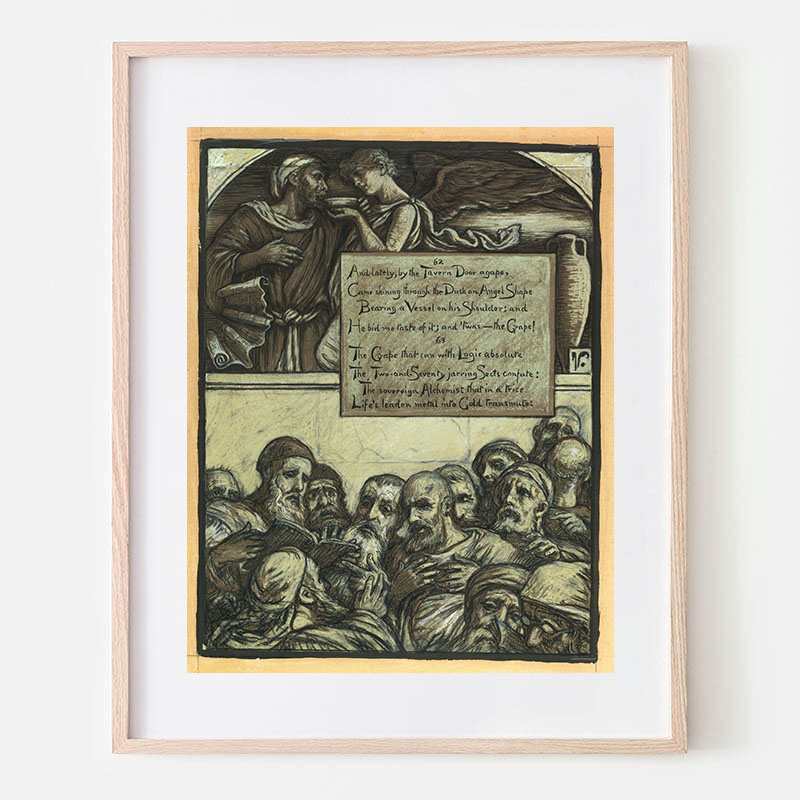 62
And lately, by the Tavern Door agape,
Came shining through the Dusk an Angel Shape
Bearing a Vessel on his Shoulder; and
He bid me taste of it; and 'twas — the Grape!
63
The Grape that can with Logic absolute
The Two-and-Seventy jarring Sects confute:
The sovereign Alchemist that in a trice
Life's leaden metal into Gold transmute:
V